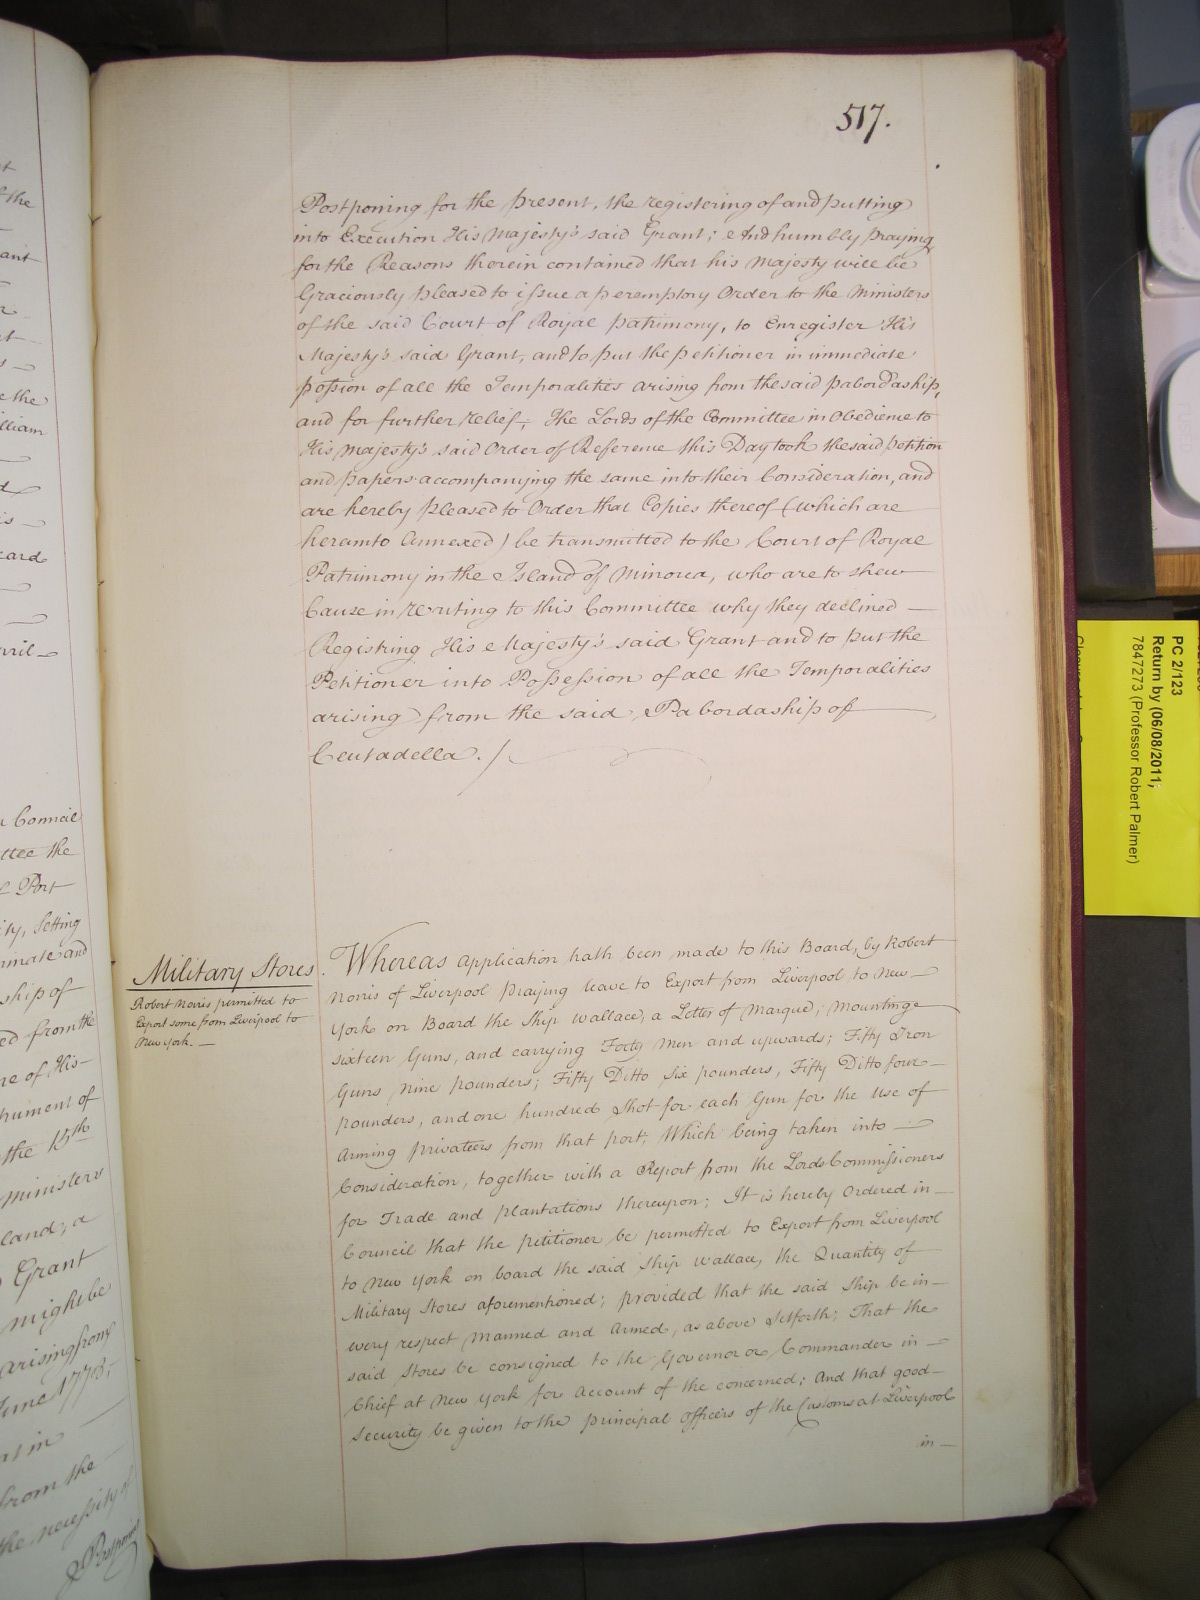 517.
Postponing for the present, the registering of and putting
into Execution His Majesty's said Grant; And humbly praying
for the Reasons therein contained that his Majesty will be
Graciously pleased to issue a peremptory Order to the Ministers
of the said Court of Royal patrimony, to Enregister His
Majesty's said Grant, and to put the petitioner in immediate
possion of all the Temporalities arising from the said pabordaship,
and for further relief; The Lords of the Committee in Obedience to
His Majesty's said Order of Reference this Day took the said petition
and papers accompanying the same into their Consideration, and
are hereby pleased to Order that Copies thereof (which are
hereunto Annexed) be transmitted to the Court of Royal
Patrimony in the Island of Minorca, who are to shew
Cause in Writing to this Committee why they declined —
Registring His Majesty's said Grant and to put the
Petitioner into Possession of all the Temporalities
arising from the said Pabordaship of
Ceutadella./
Military Stores.
Robert Norris permitted to
Export some from Liverpool to
New York. —
Whereas Application hath been made to this Board, by Robert
Norris of Liverpool praying leave to Export from Liverpool to New —
York on Board the Ship Wallace, a Letter of Marque; Mounting
sixteen Guns, and carrying Forty Men and upwards; Fifty Iron
Guns Nine pounders; Fifty Ditto six pounders, Fifty Ditto four —
pounders, and one hundred Shot for each Gun for the Use of
Arming privateers from that port; Which being taken into —
Consideration, together with a Report from the Lords Commissioners
for Trade and plantations thereupon; It is hereby Ordered in —
Council that the petitioner be permitted to Export from Liverpool
to New York on board the said Ship Wallace, the Quantity of
Military Stores aforementioned; provided that the said Ship be in —
every respect Manned and Armed, as above Setforth; That the
said Stores be consigned to the Governor or Commander in —
Chief at New York for Account of the concerned; And that good —
Security be given to the principal Officers of the Customs at Liverpool
in —
PC 2/123
Return by (06/08/2011;
7847273 (Professor Robert Palmer)